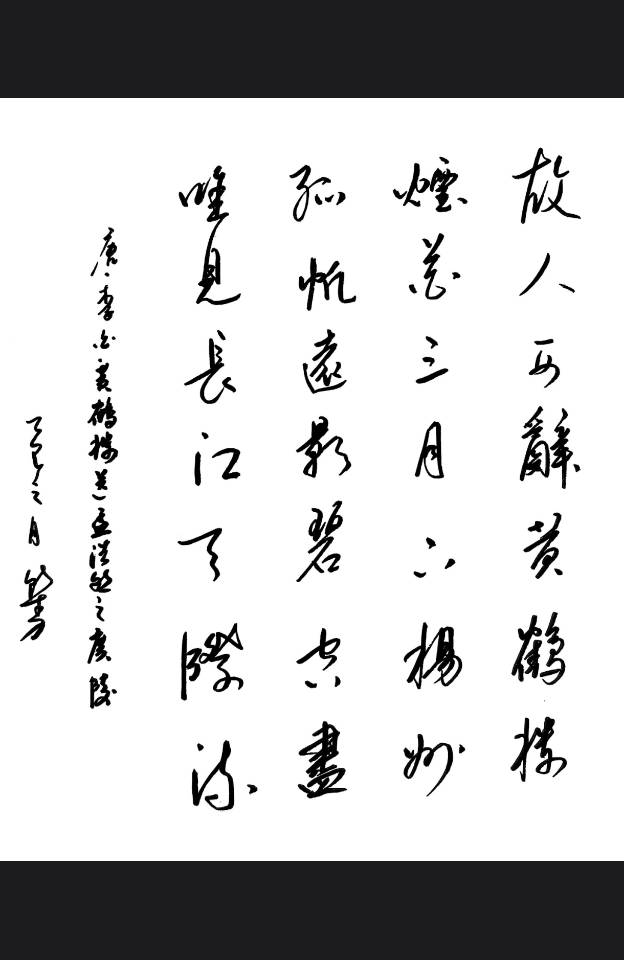 故人西辭黃鶴樓
煙花三月下揚州
孤帆遠影碧空盡
唯見長江天際流
唐·李白黃鶴樓送孟浩然之廣陵
之月